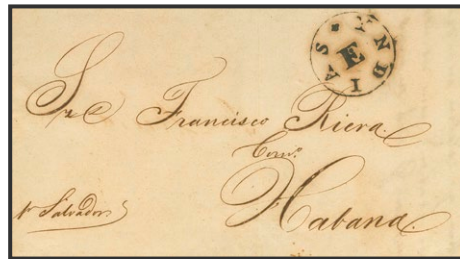 YNDIAS
E
Sr. D. Francisco Riera.
Comº.
Habana.
pr Salvador